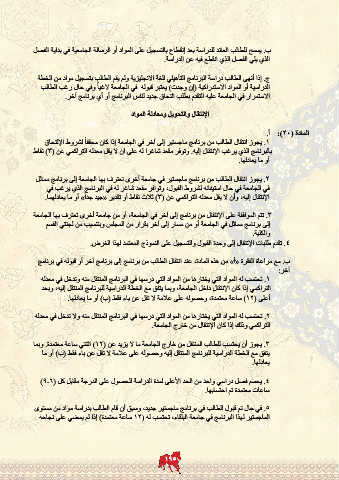 ب. يسمح للطالب العائد للدراسة بعد إنقطاع بالتسجيل على المواد أو الرسالة الجامعية في بداية الفصل
الذي يلي الفصل الذي انقطع فيه عن الدراسة.
ج. إذا أنهى الطالب دراسة البرنامج التأهيلي للغة الانجليزية ولم يقم الطالب بتسجيل مواد من الخطة
الدراسية أو المواد الاستدراكية (إن وجدت) يعتبر قبوله في الجامعة لاغياً وفي حال رغب الطالب
الاستمرار في الجامعة عليه التقدم بطلب التحاق جديد لنفس البرنامج أو أي برنامج آخر.
الإنتقال والتحويل ومعادلة المواد
المادة (٢٠): أ.
١. يجوز انتقال الطالب من برنامج ماجستير إلى آخر في الجامعة إذا كان محققاً لشروط الإلتحاق
بالبرنامج الذي يرغب الإنتقال إليه، وتوفر مقعد شاغراً له على ان لا يقل معدله التراكمي عن (٣) نقاط
أو ما يعادلها.
٢. يجوز انتقال الطالب من برنامج ماجستير في جامعة أخرى تعترف بها الجامعة إلى برنامج مماثل
في الجامعة في حال استيفائه لشروط القبول، وتوافر مقعد شاغر له في البرنامج الذي يرغب في
الإنتقال إليه، وأن لا يقل معدله التراكمي عن (٣) ثلاث نقاط أو تقدير «جيد جداً» أو ما يعادلهما.
٣. تتم الموافقة على الإنتقال من برنامج إلى آخر في الجامعة، أو من جامعة أخرى تعترف بها الجامعة
إلى برنامج مماثل في الجامعة أو من مسار إلى آخر بقرار من المجلس وبتنسيب من لجنتي القسم
والكلية.
٤. تقدم طلبات الإنتقال إلى وحدة القبول والتسجيل على النموذج المعتمد لهذا الغرض.
ب. مع مراعاة الفقرة «أ» من هذه المادة، عند انتقال الطالب من برنامج إلى برنامج آخر أو قبوله في برنامج
آخر:
١. تحتسب له المواد التي يختارها من المواد التي درسها في البرنامج المنتقل منه وتدخل في معدله
التراكمي إذا كان الإنتقال داخل الجامعة، وبما يتفق مع الخطة الدراسية للبرنامج المنتقل إليه، وبحد
أعلى (١٢) ساعة معتمدة، وحصوله على علامة لا تقل عن باء فقط (ب) أو ما يعادلها.
٢. تحتسب له المواد التي يختارها من المواد التي درسها في البرنامج المنتقل منه ولا تدخل في معدله
التراكمي وذلك إذا كان الإنتقال من خارج الجامعة.
٣. يجوز أن يحتسب للطالب المنتقل من خارج الجامعة ما لا يزيد عن (١٢) اثنتي ساعة معتمدة وبما
يتفق مع الخطة الدراسية للبرنامج المنتقل إليه وحصوله على علامة لا تقل عن باء فقط (ب) أو ما
يعادلها.
٤. يحسم فصل دراسي واحد من الحد الأعلى لمدة الدراسة للحصول على الدرجة مقابل كل (٦-٩)
ساعات معتمدة تم احتسابها.
٥. في حال تم قبول الطالب في برنامج ماجستير جديد، وسبق أن قام الطالب بدراسة مواد من مستوى
الماجستير لهذا البرنامج في جامعة البلقاء، تحتسب له (١٢ ساعة معتمدة) إذا لم يمضي على نجاحه